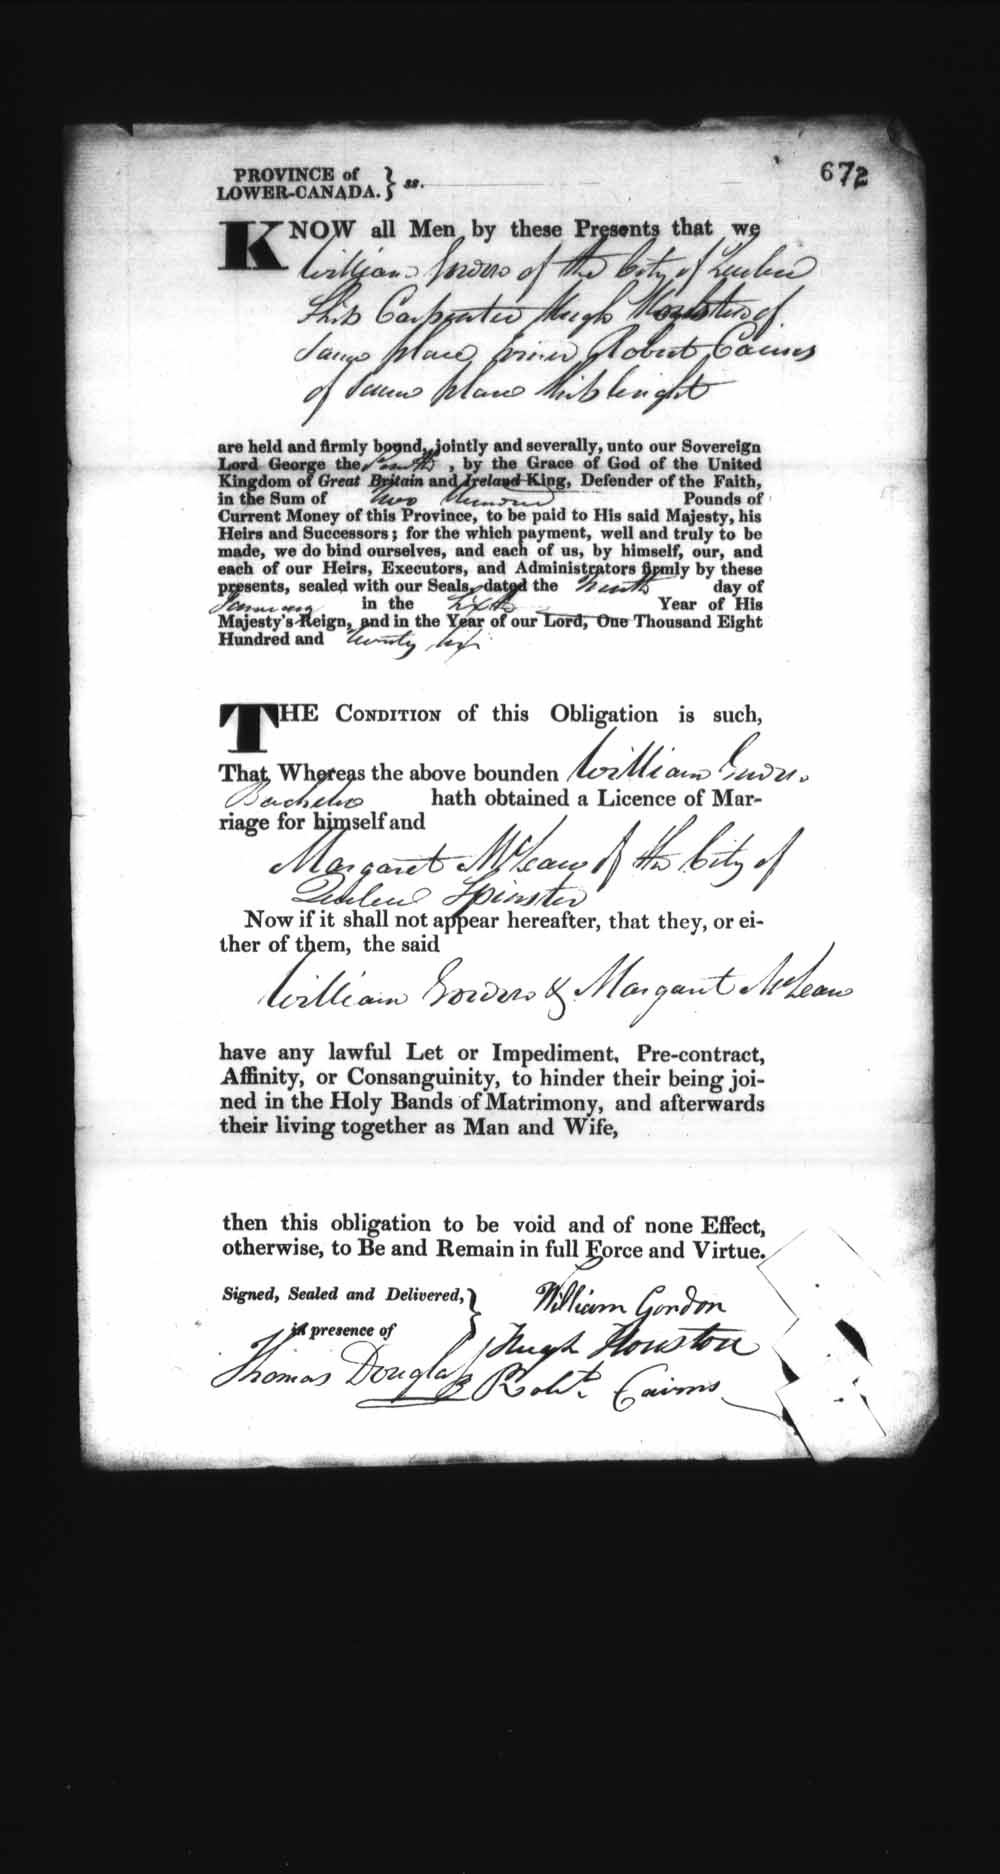 672
PROVINCE of
LOWER-CANADA. } ss.
KNOW all Men by these Presents that we
William Gordon of the City of Quebec
Ship Carpenter Hugh Houston of
same place Joiner Robert Cairns
of same place Shipwright
are held and firmly bound, jointly and severally, unto our Sovereign
Lord George the fourth, by the Grace of God of the United
Kingdom of Great Britain and Ireland King, Defender of the Faith,
in the Sum of two hundred Pounds of
Current Money of this Province, to be paid to His said Majesty, his
Heirs and Successors; for the which payment, well and truly to be
made, we do bind ourselves, and each of us, by himself, our, and
each of our Heirs, Executors, and Administrators firmly by these
presents, sealed with our Seals, dated the Ninth day of
January in the Sixth Year of His
Majesty's Reign, and in the Year of our Lord, One Thousand Eight
Hundred and twenty six
THE CONDITION of this Obligation is such,
That Whereas the above bounden William Gordon
Bachelor hath obtained a Licence of Mar-
riage for himself and
Margaret McLean of the City of
Quebec Spinster
Now if it shall not appear hereafter, that they, or ei-
ther of them, the said
William Gordon & Margaret McLean
have any lawful Let or Impediment, Pre-contract,
Affinity, or Consanguinity, to hinder their being joi-
ned in the Holy Bands of Matrimony, and afterwards
their living together as Man and Wife,
then this obligation to be void and of none Effect,
otherwise, to Be and Remain in full Force and Virtue.
Signed, Sealed and Delivered, } William Gordon
in presence of Hugh Houston
Thomas Douglas Robt. Cairns